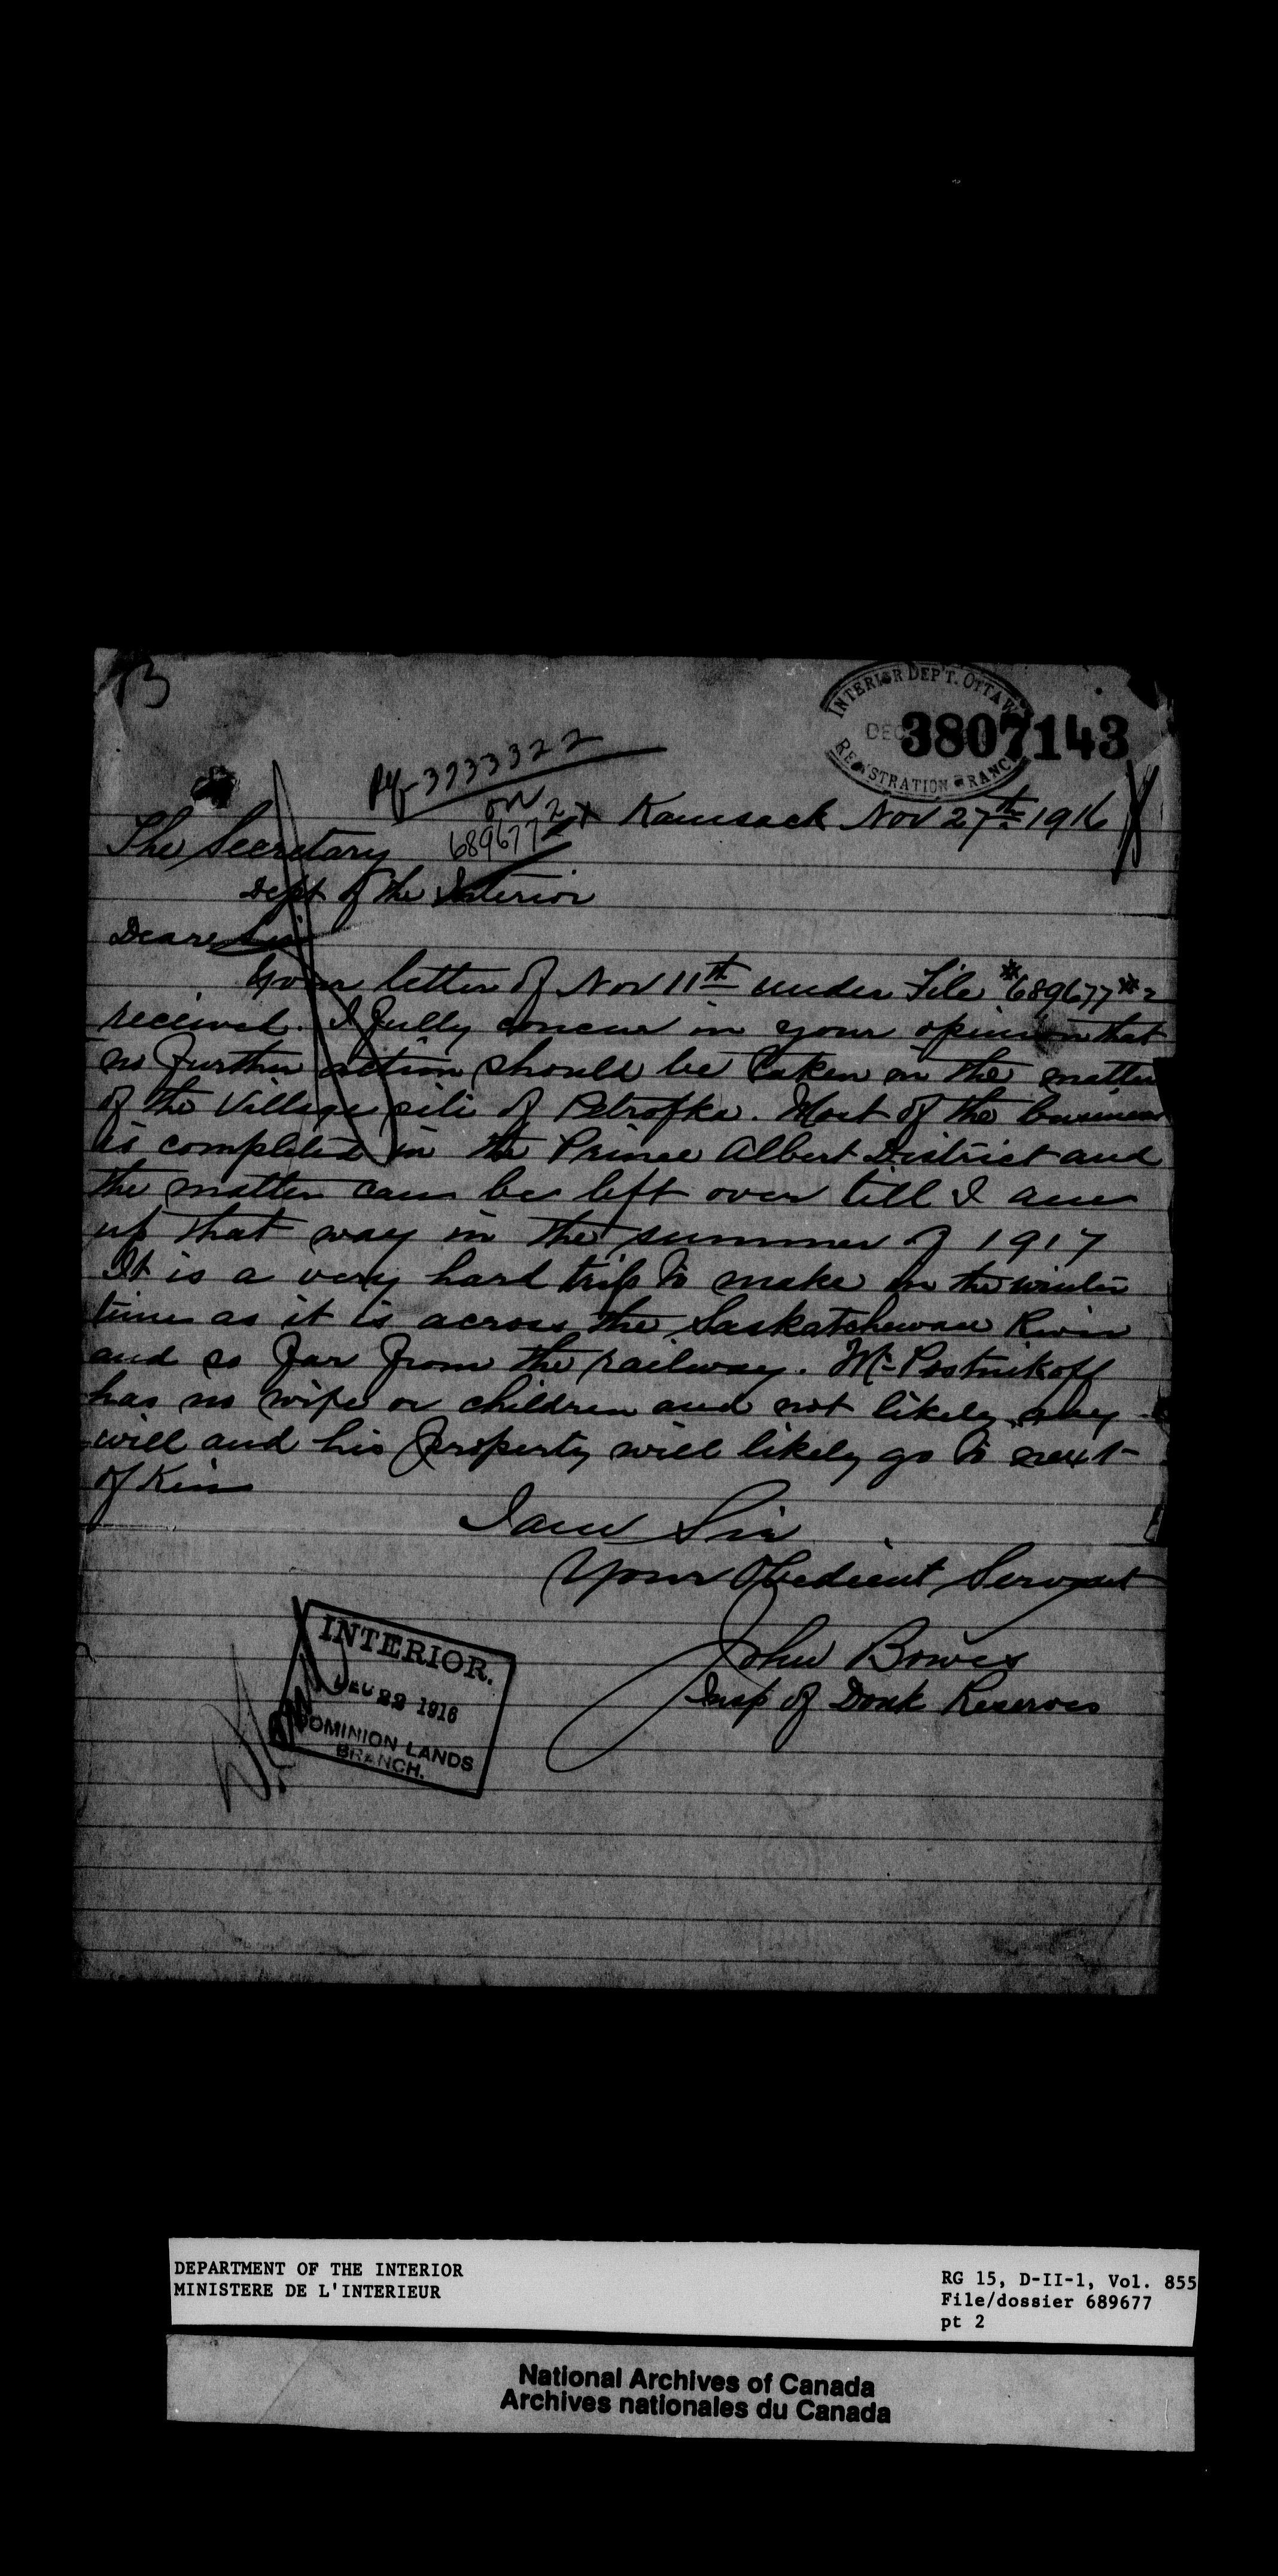 INTERIOR DEPT. OTTAWA
DEC
3807143
REGISTRATION BRANCH
Ref 3733322
on
689677 2
Kamsack Nov 27th 1916
The Secretary
Dept of the Interior
Deare Sir
Your letter of Nov 11th under File #689677#2
received. I fully concur in your opinion that
no further action should be taken in the matter
of the Village site of Petrofka. Most of the business
is completed in the Prince Albert District and
the matter can be left over till I am
up that way in the summer of 1917
It is a very hard trip to make in the winter
time as it is across the Saskatchewan River
and so far from the railway. Mr Postnikoff
has no wife or children and not likely any
will and his property will likely go to next
of Kin
I am Sir
Your Obedient Servant
John Bowes
Insp of Douk Reserves
INTERIOR.
DEC 22 1916
DOMINION LANDS
BRANCH.
DEPARTMENT OF THE INTERIOR
MINISTERE DE L'INTERIEUR
RG 15, D-II-1, Vol. 855
File/dossier 689677
pt 2
National Archives of Canada
Archives nationales du Canada